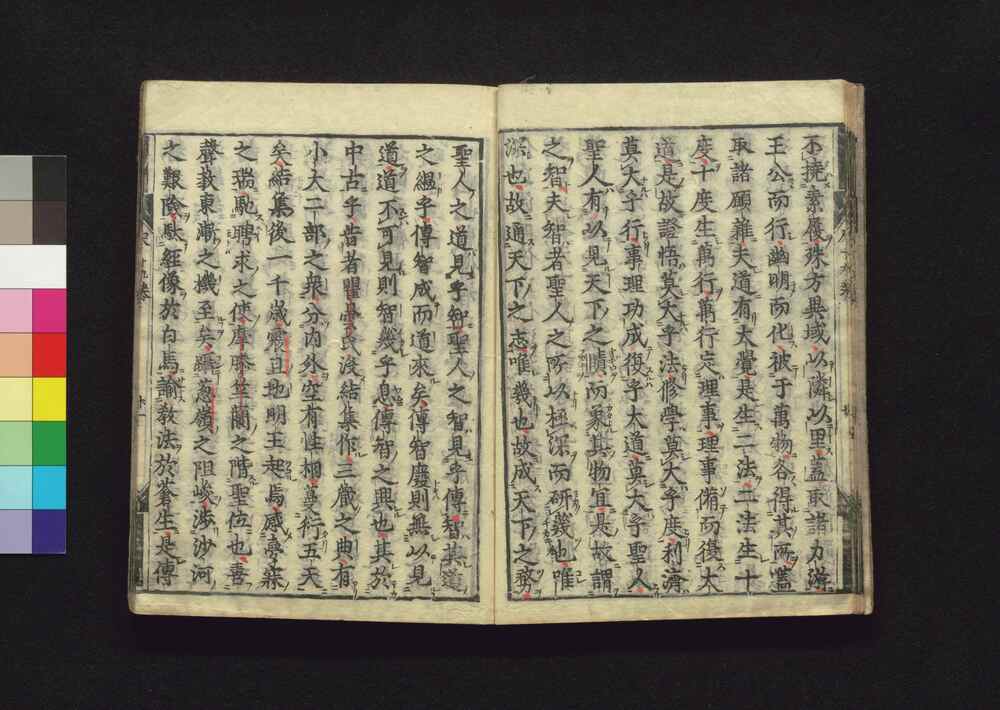 不撓素履殊方異域以隣以里蓋取諸力游
王公而行幽明而化被于萬物各得其所蓋
取諸願雖夫道有大覺是生二法二法生十
度十度生萬行萬行定理事理事備而復大
道是故證悟莫大乎法修學莫大乎度利濟
莫大乎行事理功成復乎大道莫大乎聖人
聖人有以見天下之賾而象其物宜是故謂
之智夫智者聖人之所以極深而研幾也唯
深也故通天下之志唯幾也故成天下之務
聖人之道見乎智聖人之智見乎傳智其道
之縕乎傳智成而道求矣傳智廢則無以見
道道不可見則智幾乎息傳智之興也其於
中古乎昔者瞿曇氏沒結集作三歳之典有
小大二部之衆分内外空有性相莫行五天
矣結集後一千歳震旦地明王起焉感夢寐
之瑞馳聘求之使摩騰竺蘭之階聖位也善
聲教東漸之機至矣躡葱嶺之阻峻渉沙河
之艱險駄經像於白馬諭教法於蒼生是傳